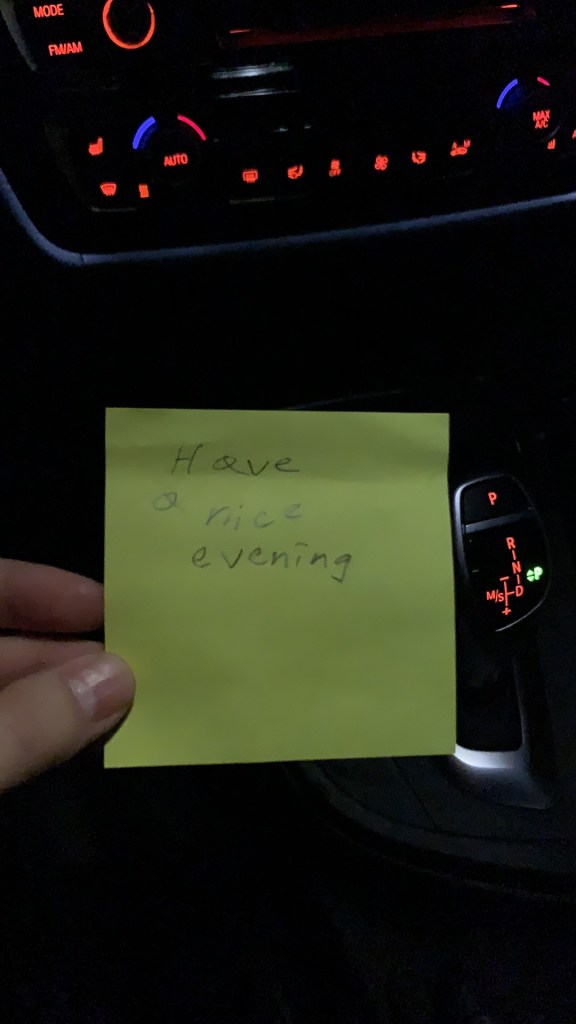 MODE
FM/AM
AUTO
MAX
A/C
Have
a nice
evening
P
R
N
P
M/S
D